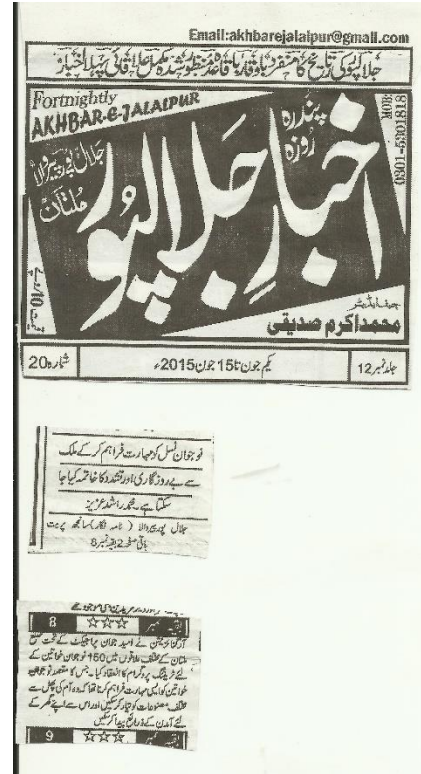 Email:akhbarejalalpur@gmail.com
جلالپور کی تاریخ کا منفرد باوقار باقاعدہ منظور شدہ مکمل علاقائی پہلا اخبار
Fortnightly
AKHBAR-e-JALALPUR
پندرہ روزہ
MOB:
0301-5301818
جلال پور پیروالا
ملتان
اخبارِ جلالپور
قیمت 10 روپے
چیف ایڈیٹر
محمد اکرم صدیقی
جلد نمبر 12
یکم جون تا 15 جون 2015ء
شمارہ 20
نوجوان نسل کو مہارت فراہم کر کے ملک
سے بے روزگاری اور تشدد کا خاتمہ کیا جا
سکتا ہے۔ محمد راشد عزیز
جلال پور پیروالا ( نامہ نگار) سانجھ پریت
باقی صفحہ 2 بقیہ نمبر 8
بقیہ نمبر ☆☆☆ 8
آرگنائزیشن نے امید جوان پراجیکٹ کے تحت ضلع
ملتان کے مختلف علاقوں میں 150 نوجوان خواتین کے
لئے ٹریننگ پروگرام کا انعقاد کیا۔ جس کا مقصد نوجوان
خواتین کو ایسی مہارت فراہم کرنا تھا کہ وہ آم کی پھل سے
مختلف مصنوعات کو تیار کر سکیں اور اس سے اپنے گھر کے
لئے آمدن کے ذرائع پیدا کر سکیں
بقیہ نمبر ☆☆☆ 9